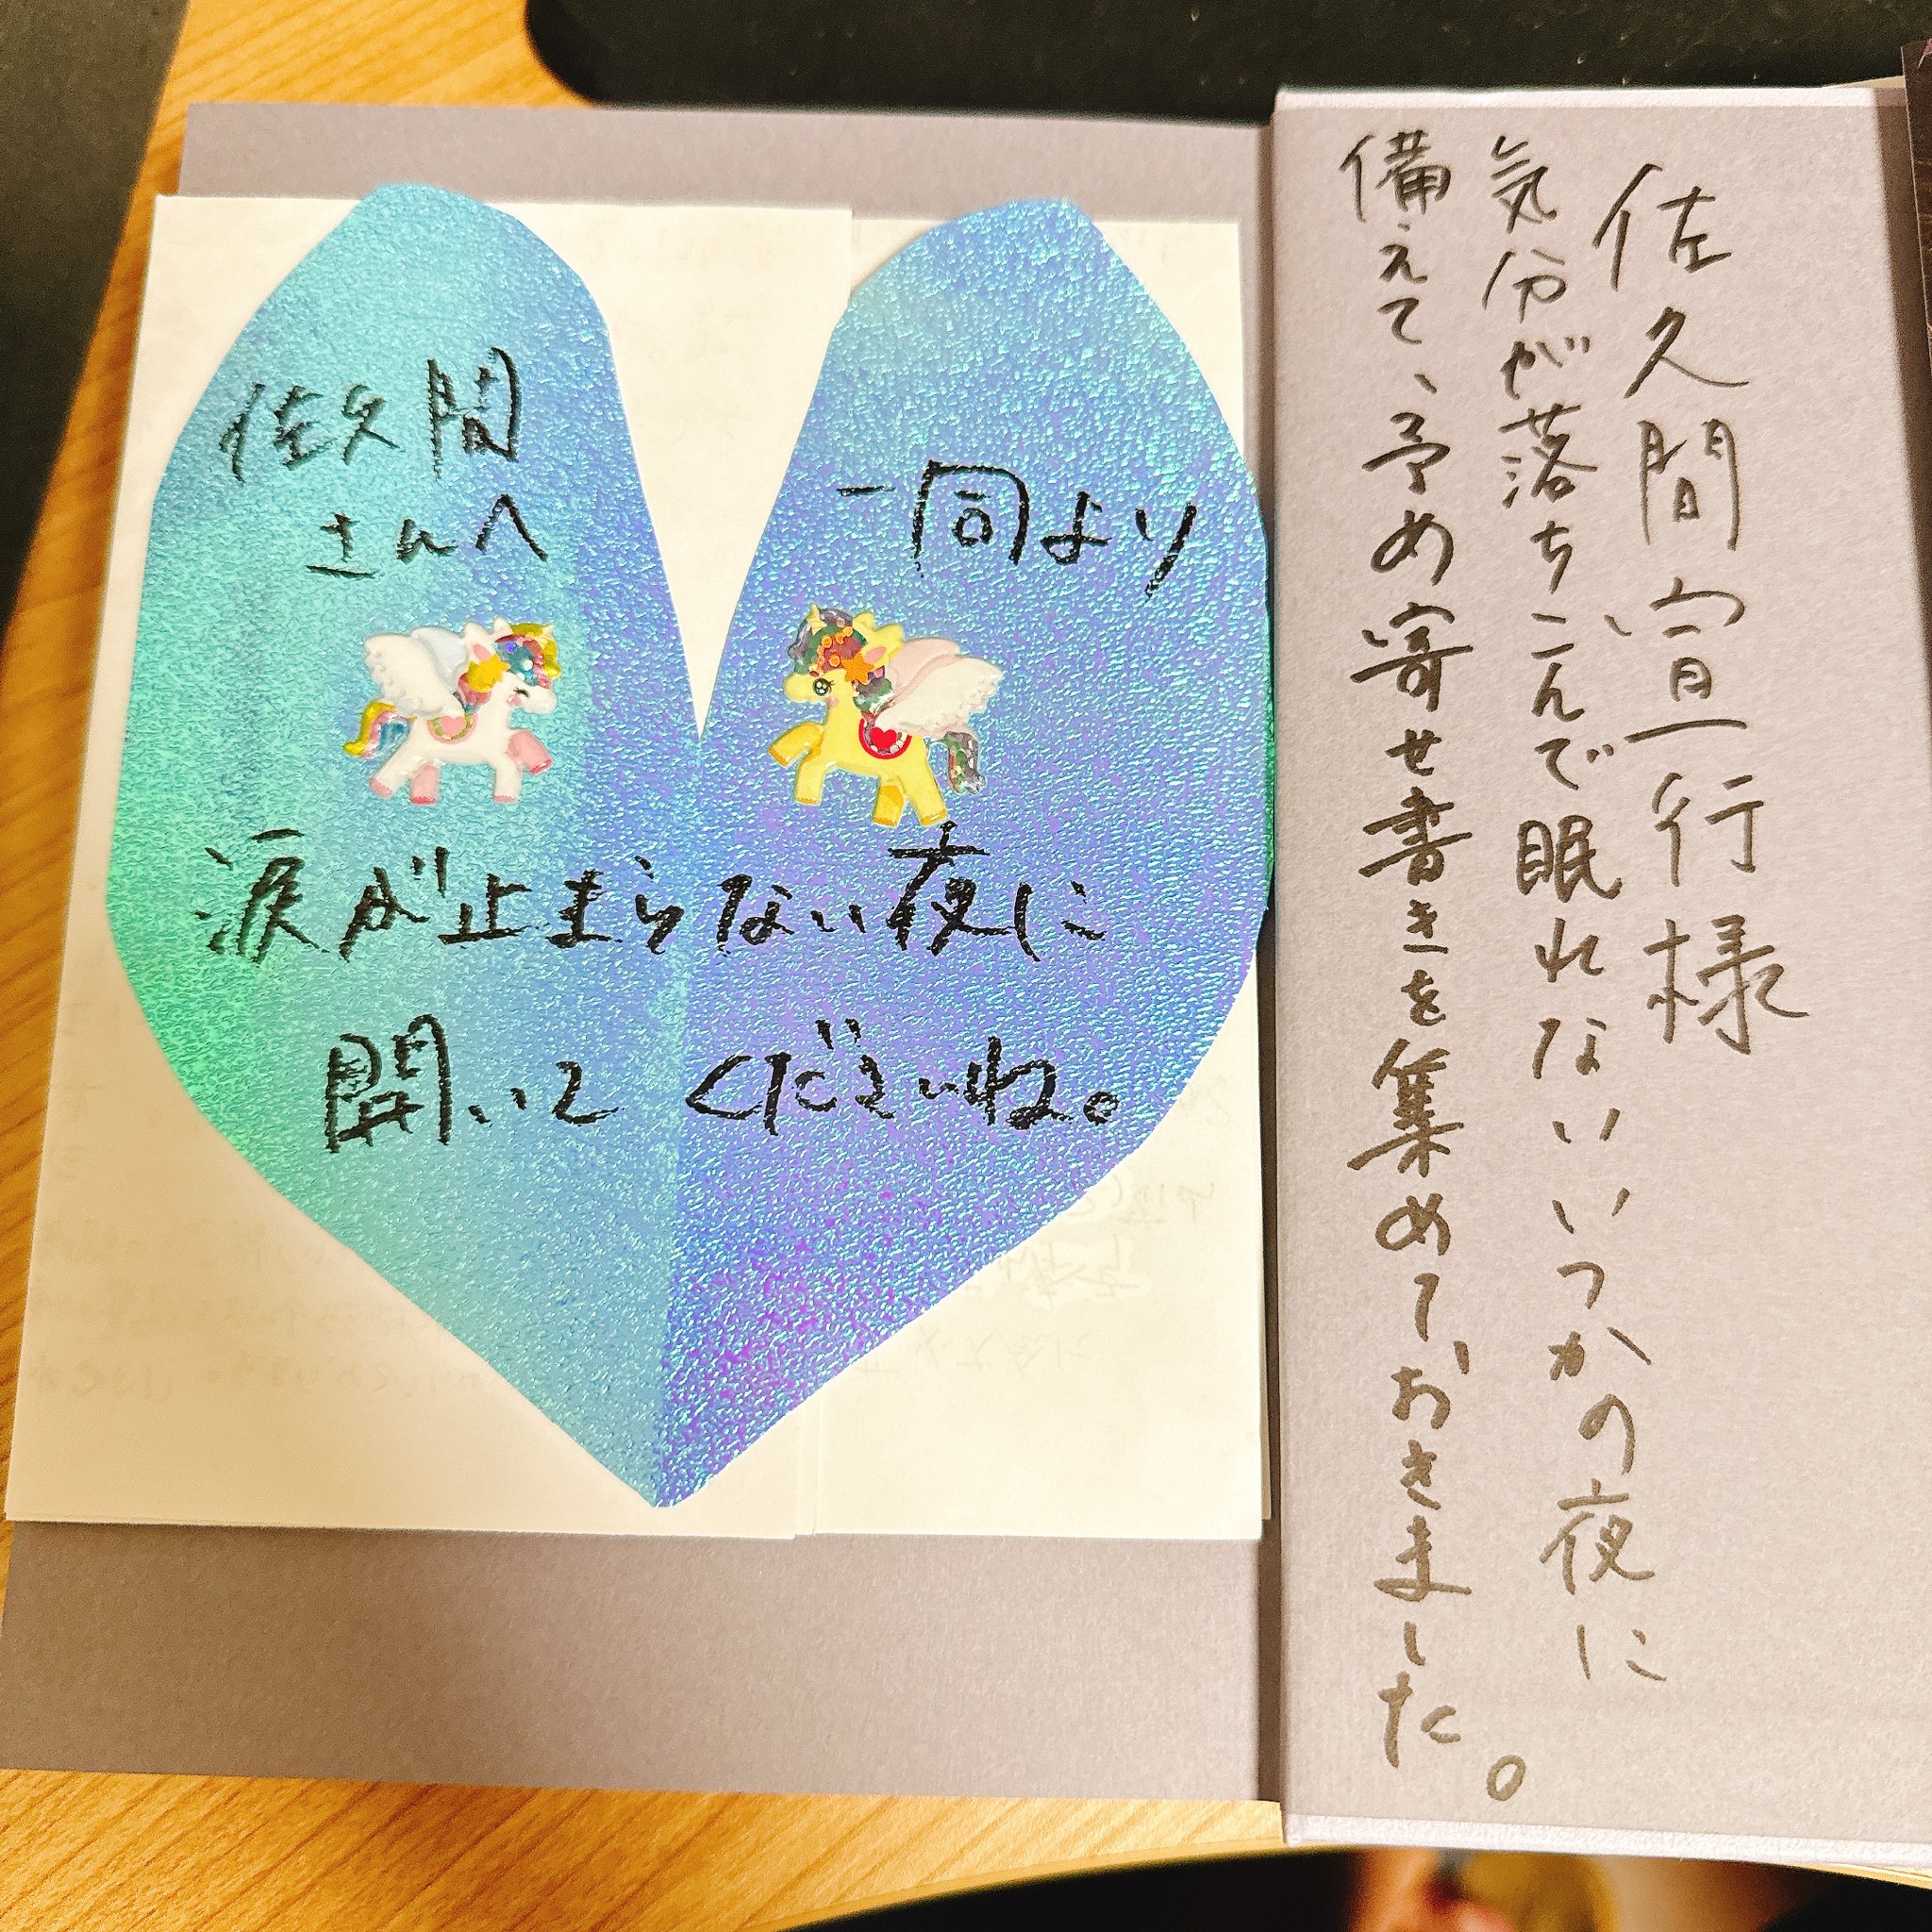 佐久間宣行様
気分が落ちこんで眠れないいつかの夜に
備えて、予め寄せ書きを集めて、おきました。
佐久間
さんへ
一同より
涙が止まらない夜に
開いて くださいね。